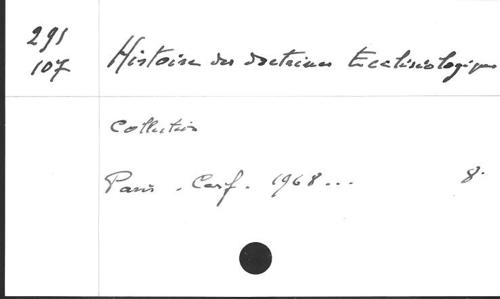 291
107
Histoire des doctrines Ecclésiologiques
Collection
Paris . Cerf . 1968 ... 8°